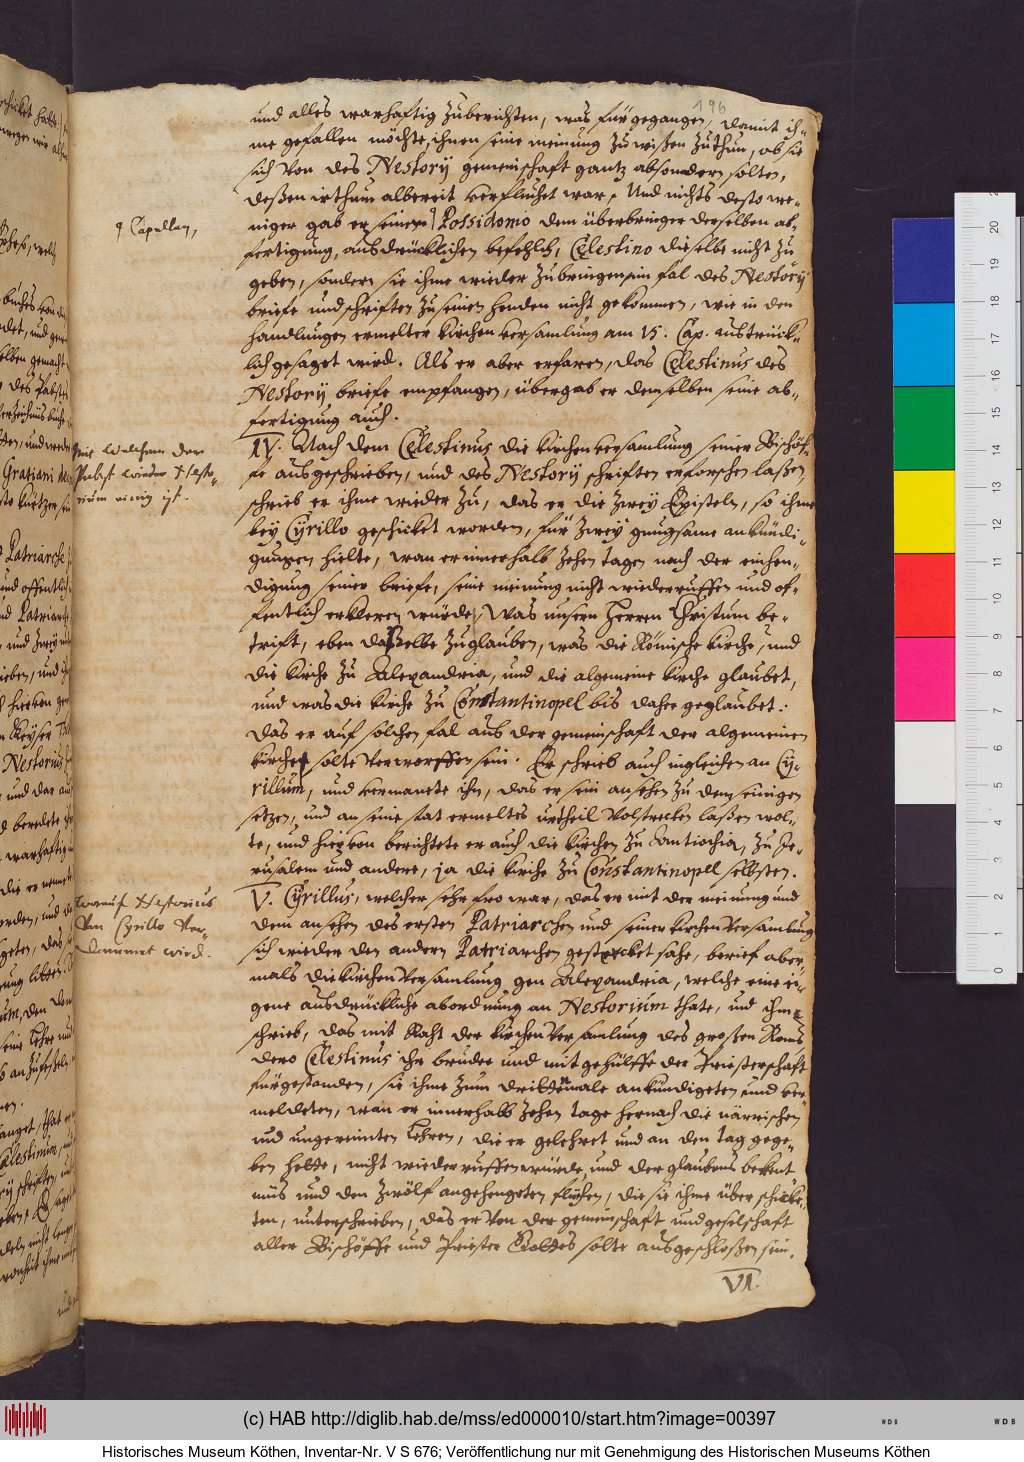 196
und alles warhaftig zuberichten, was fürgegangen, damit ih-
me gefallen möchte, ihnen seine meinung zu wißen zuthun, ob sie
sich von des Nestorÿ gemeinschaft gantz absondern solten,
deßen irthum albereit verfluchet war. Und nichts desto we-
niger gab er seinem Possidonio dem überbringer derselben ab-
fertigung, ausdrücklichen befehlich, Celestino dieselbe nicht zu
geben, sondern sie ihme wieder zubringen, im fal des Nestorÿ
briefe und schriften zu seinen henden nicht gekommen, wie in den
handlungen ermelter kirchen versamlung am 15. Cap. austrück-
lich gesaget wird. Als er aber erfaren, das Celestinus des
Nestorÿ briefe empfangen, übergab er demselben seine ab-
fertigung auch.
IV. Nach dem Celestinus die kirchen versamlung seiner Bischöf-
fe ausgeschrieben, und des Nestorÿ schriften erforschen laßen,
schrieb er ihme wieder zu, das er die zweÿ Episteln, so ihme
beÿ Cyrillo geschicket worden, für zweÿ gnugsame ankündi-
gungen hielte, wan er innerhalb zehen tagen nach der einhen-
digung seiner briefe, seine meinung nicht wiederruffen und of-
fentlich erkleren würde, Was unsern Herren Christum be-
trift, eben daßelbe zuglauben, was die Römische kirche, und
die kirche zu Alexandria, und die algemeine kirche glaubet,
und was die kirche zu Constantinopel bis daher geglaubet:
das er auf solchen fal aus der gemeinschaft der algemeinen
kirchen solte verworffen sein. Er schrieb auch ingleichen an Cÿ-
rillum, und vermanete ihn, das er sein ansehen zu dem seinigen
setzen, und an seine stat ermeltes urtheil volstrecken laßen wol-
te, und hiervon berichtete er auch die kirchen zu Antiochia, zu Je-
rusalem und andere, ja die kirche zu Constantinopel selbsten.
V. Cÿrillus, welcher sehr fro war, das er mit der meinung und
dem ansehen des ersten Patriarchen und seiner kirchen versamlung
sich wieder den andern Patriarchen gestercket sahe, berief aber-
mals die kirchen versamlung gen Alexandria, welche eine ei-
gene ausdrückliche abordnung an Nestorium thate, und ihme
schrieb, das mit Raht der kirchen versamlung des großen Roms
dero Celestinus ihr bruder und mitgehülffe der Priesterschaft
fürgestanden, sie ihme zum drittenmale ankündigeten und ver-
meldeten, wan er innerhalb zehen tage hernach die närrischen
und ungereimten Lehren, die er gelehret und an den tag gege-
ben hette, nicht wiederruffen würde, und der glaubens bekent-
nüs und den zwölf angehengeten flüchen, die sie ihme überschicke-
ten, unterschrieben, das er von der gemeinschaft und geselschaft
aller Bischöffe und Priester Gottes solte ausgeschloßen sein.
VI.
Capellan,
mit welchem der
Pabst wieder Nesto-
rium einig ist.
worauf Nestorius
von Cyrillo ver-
dammet wird.
(c) HAB http://diglib.hab.de/mss/ed000010/start.htm?image=00397
Historisches Museum Köthen, Inventar-Nr. V S 676; Veröffentlichung nur mit Genehmigung des Historischen Museums Köthen